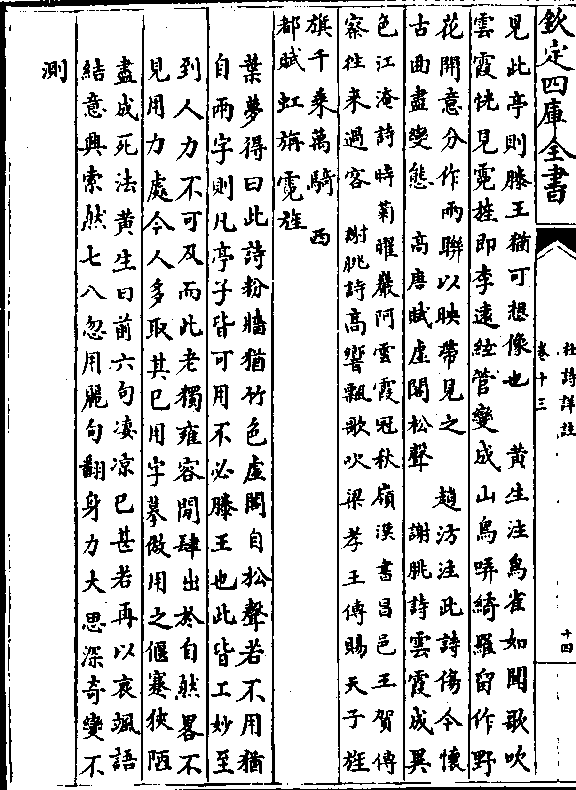 欽定四庫全書
杜詩詳註
卷十三
十四
見此亭則滕王猶可想像也　黄生注鳥雀如聞歌吹
雲霞恍見霓旌即李遠絃管變成山鳥哢綺羅留作野
花開意分作兩聯以映帶見之　趙汸注此詩傷今懷
古曲盡變態　高唐賦虛聞松聲　謝朓詩雲霞成異
色江淹詩時菊曜巖阿雲霞冠秋嶺漢書昌邑王賀傳
察往来過客　謝朓詩高響飄歌吹梁孝王傳賜天子旌
旗千乘萬騎　西
都賦虹旃霓旌
葉夢得曰此詩粉牆猶竹色虛閣自松聲若不用猶
自兩字則凡亭子皆可用不必滕王也此皆工妙至
到人力不可及而此老獨雍容閒肆出於自然畧不
見用力處今人多取其已用字摹倣用之偃蹇狹陋
盡成死法黄生曰前六句凄凉已甚若再以哀颯語
結意興索然七八忽用麗句翻身力大思深奇變不
測